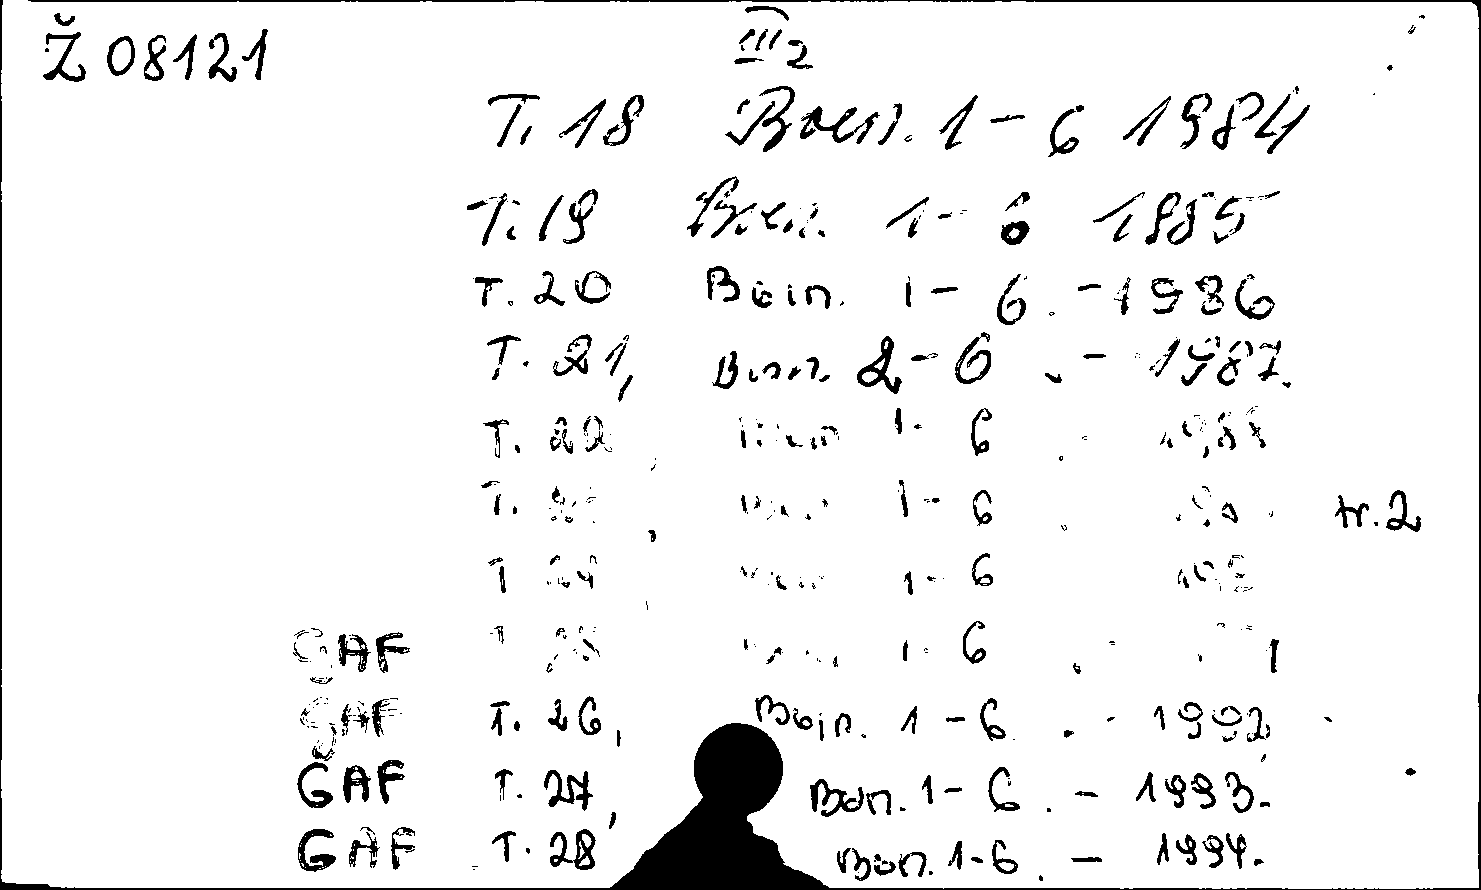 Ž 08121
III 2
T. 18 Вып. 1-6 1984
T. 19 Вып. 1-6 1985
T. 20 Вып. 1-6. - 1986
T. 21, Вып. 2-6. - 1987.
T. 22, Вып 1-6. 1988
T. , 1-6. tr. 2
T 24 1-6
GAF T 25 1-6. 1
GAF T. 26, Вып. 1-6. - 1992.
GAF T. 27, Вып. 1-6. - 1993.
GAF T. 28 Вып. 1-6. - 1994.